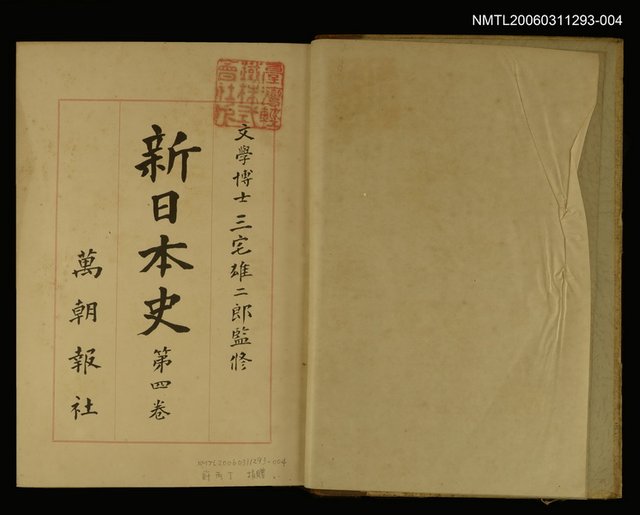 NMTL20060311293-004
臺灣製
糖株式
會社印
文學博士 三宅雄二郎監修
新日本史 第四卷
萬朝報社
NMTL20060311293-004
捐贈